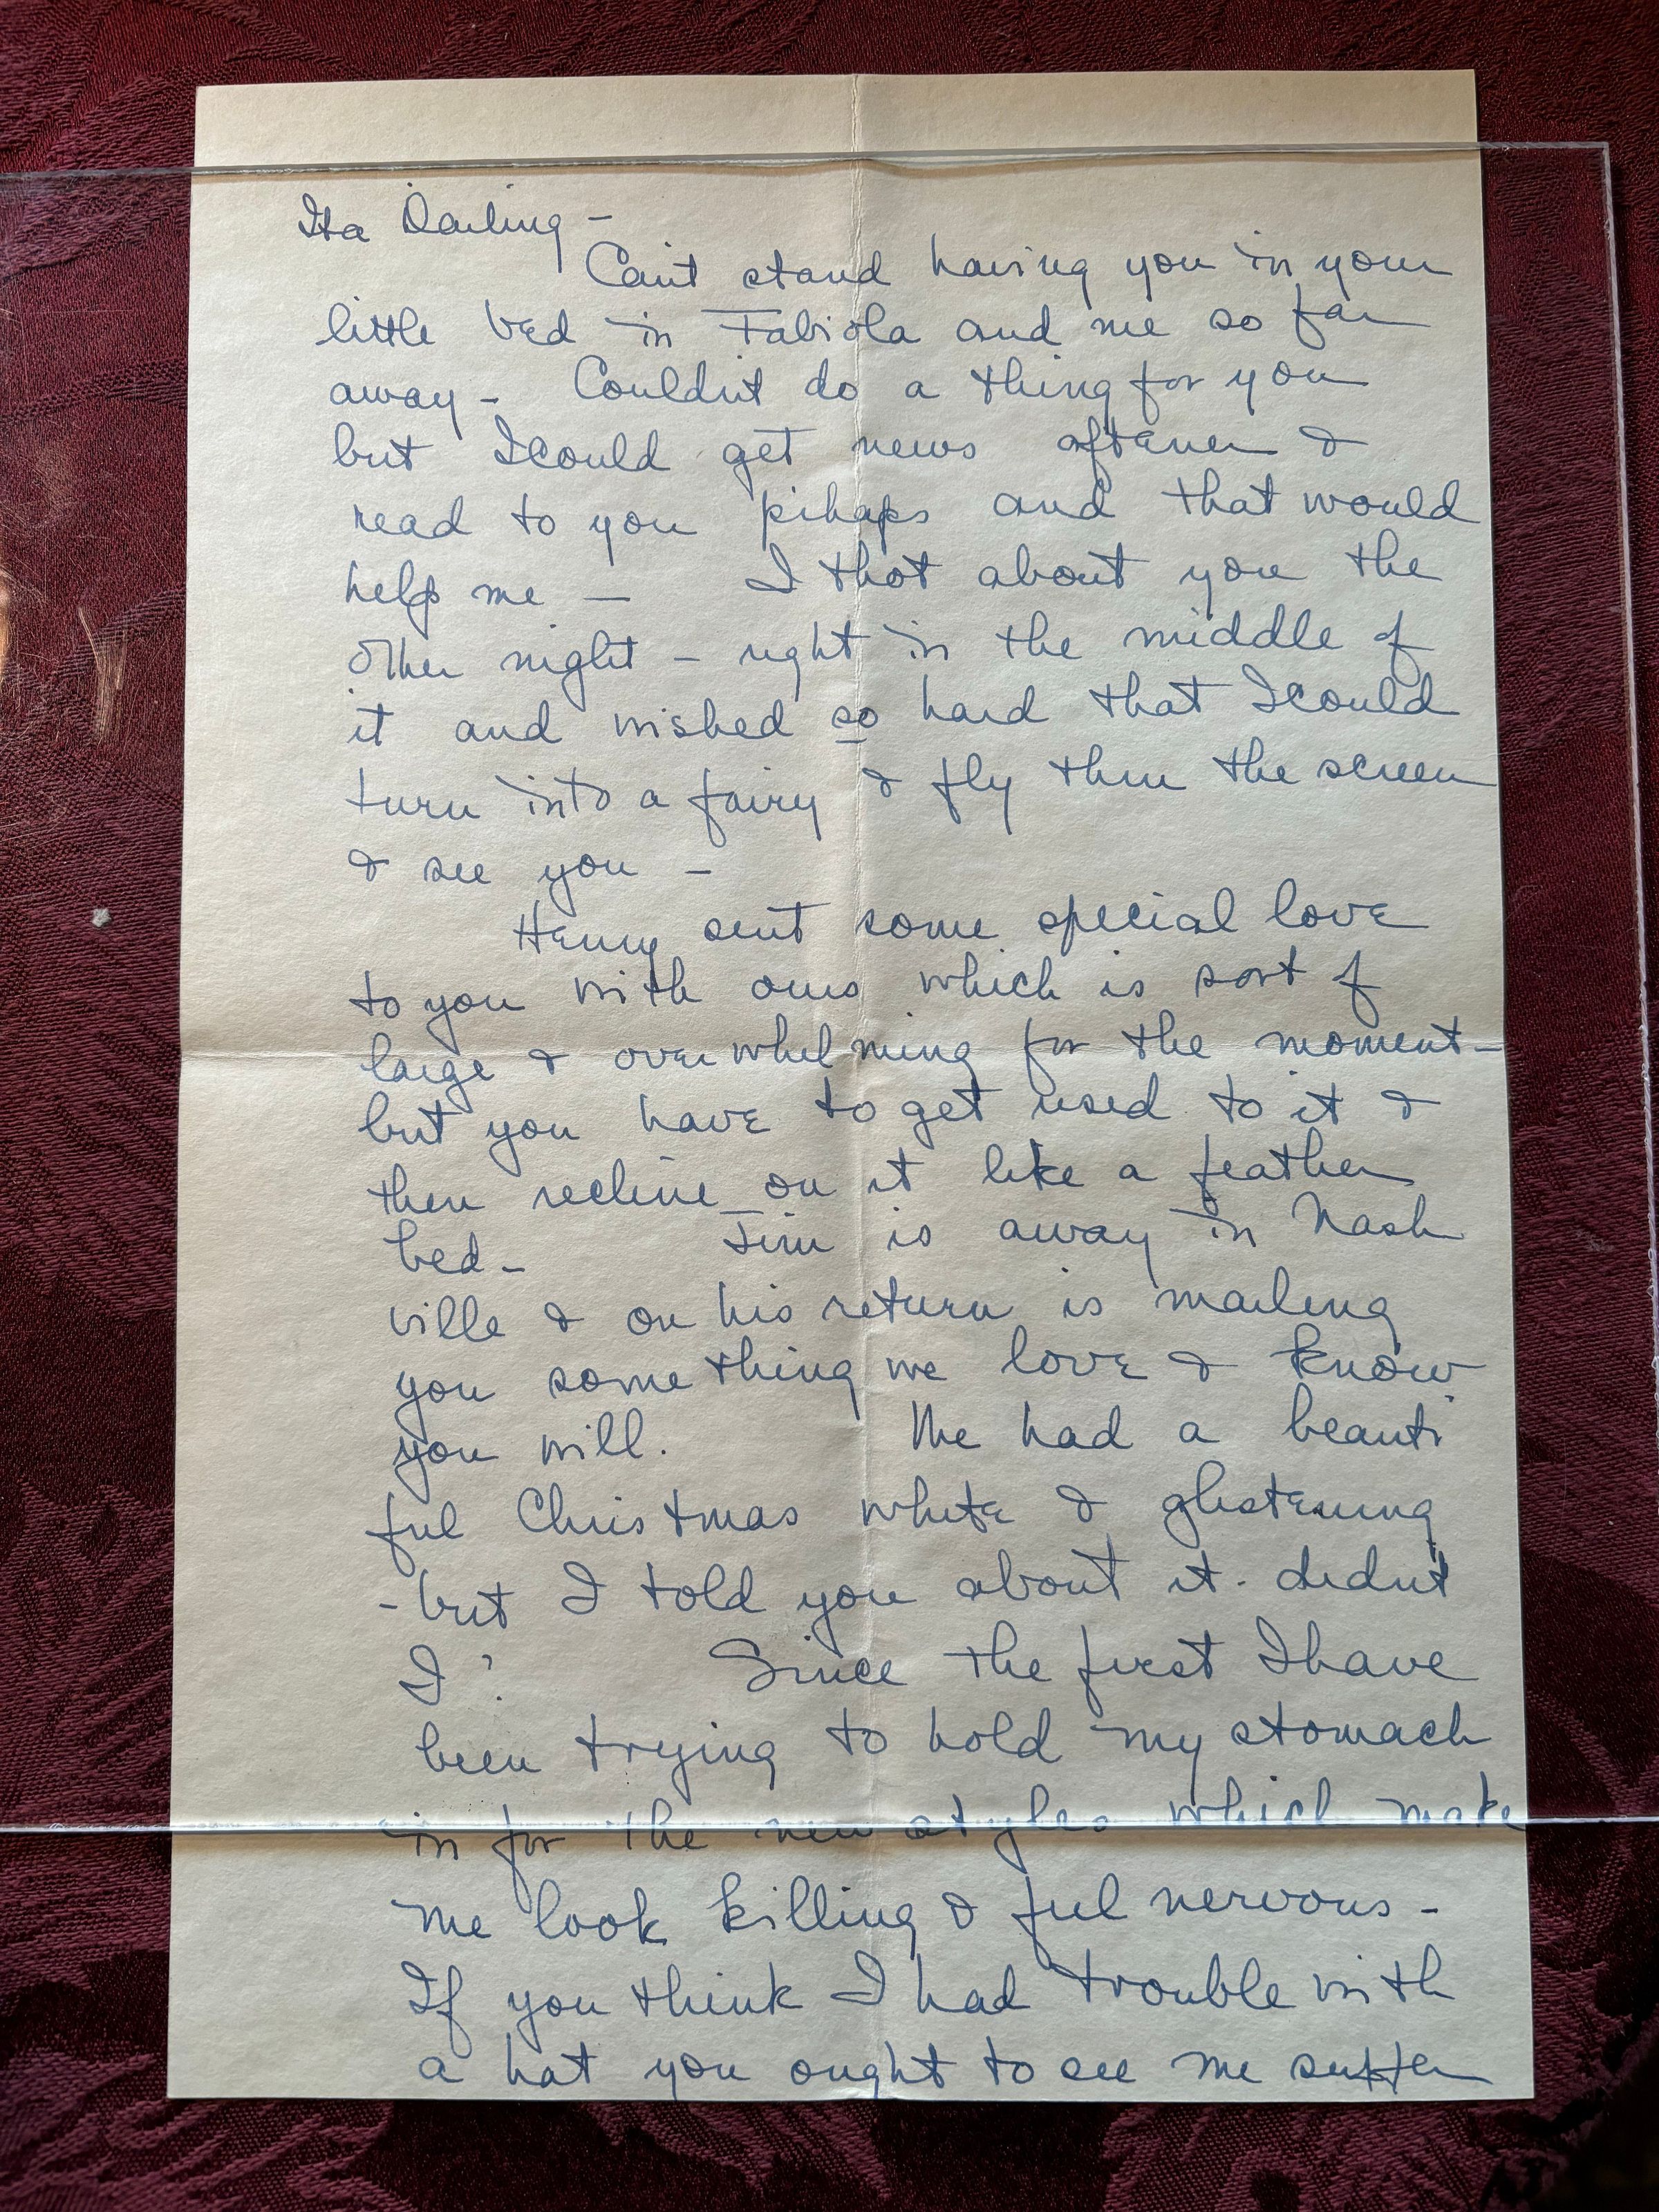 Ita Darling -
Can't stand having you in your
little bed in Fabiola and me so far
away - Couldn't do a thing for you
but I could get news oftener &
read to you pihaps and that would
help me — I thot about you the
other night - right in the middle of
it and wished so hard that I could
turn into a fairy & fly thru the screen
& see you -
Henry sent some special love
to you with ours which is sort of
large & overwhelming for the moment -
but you have to get used to it &
then recline on it like a feather
bed - Jim is away in Nash
ville & on his return is mailing
you something we love & know
you will. We had a beauti
ful Christmas white & glistening
- but I told you about it - didn't
I? Since the first I have
been trying to hold my stomach
in for the new styles which make
me look killing & feel nervous -
If you think I had trouble with
a hat you ought to see me suffer